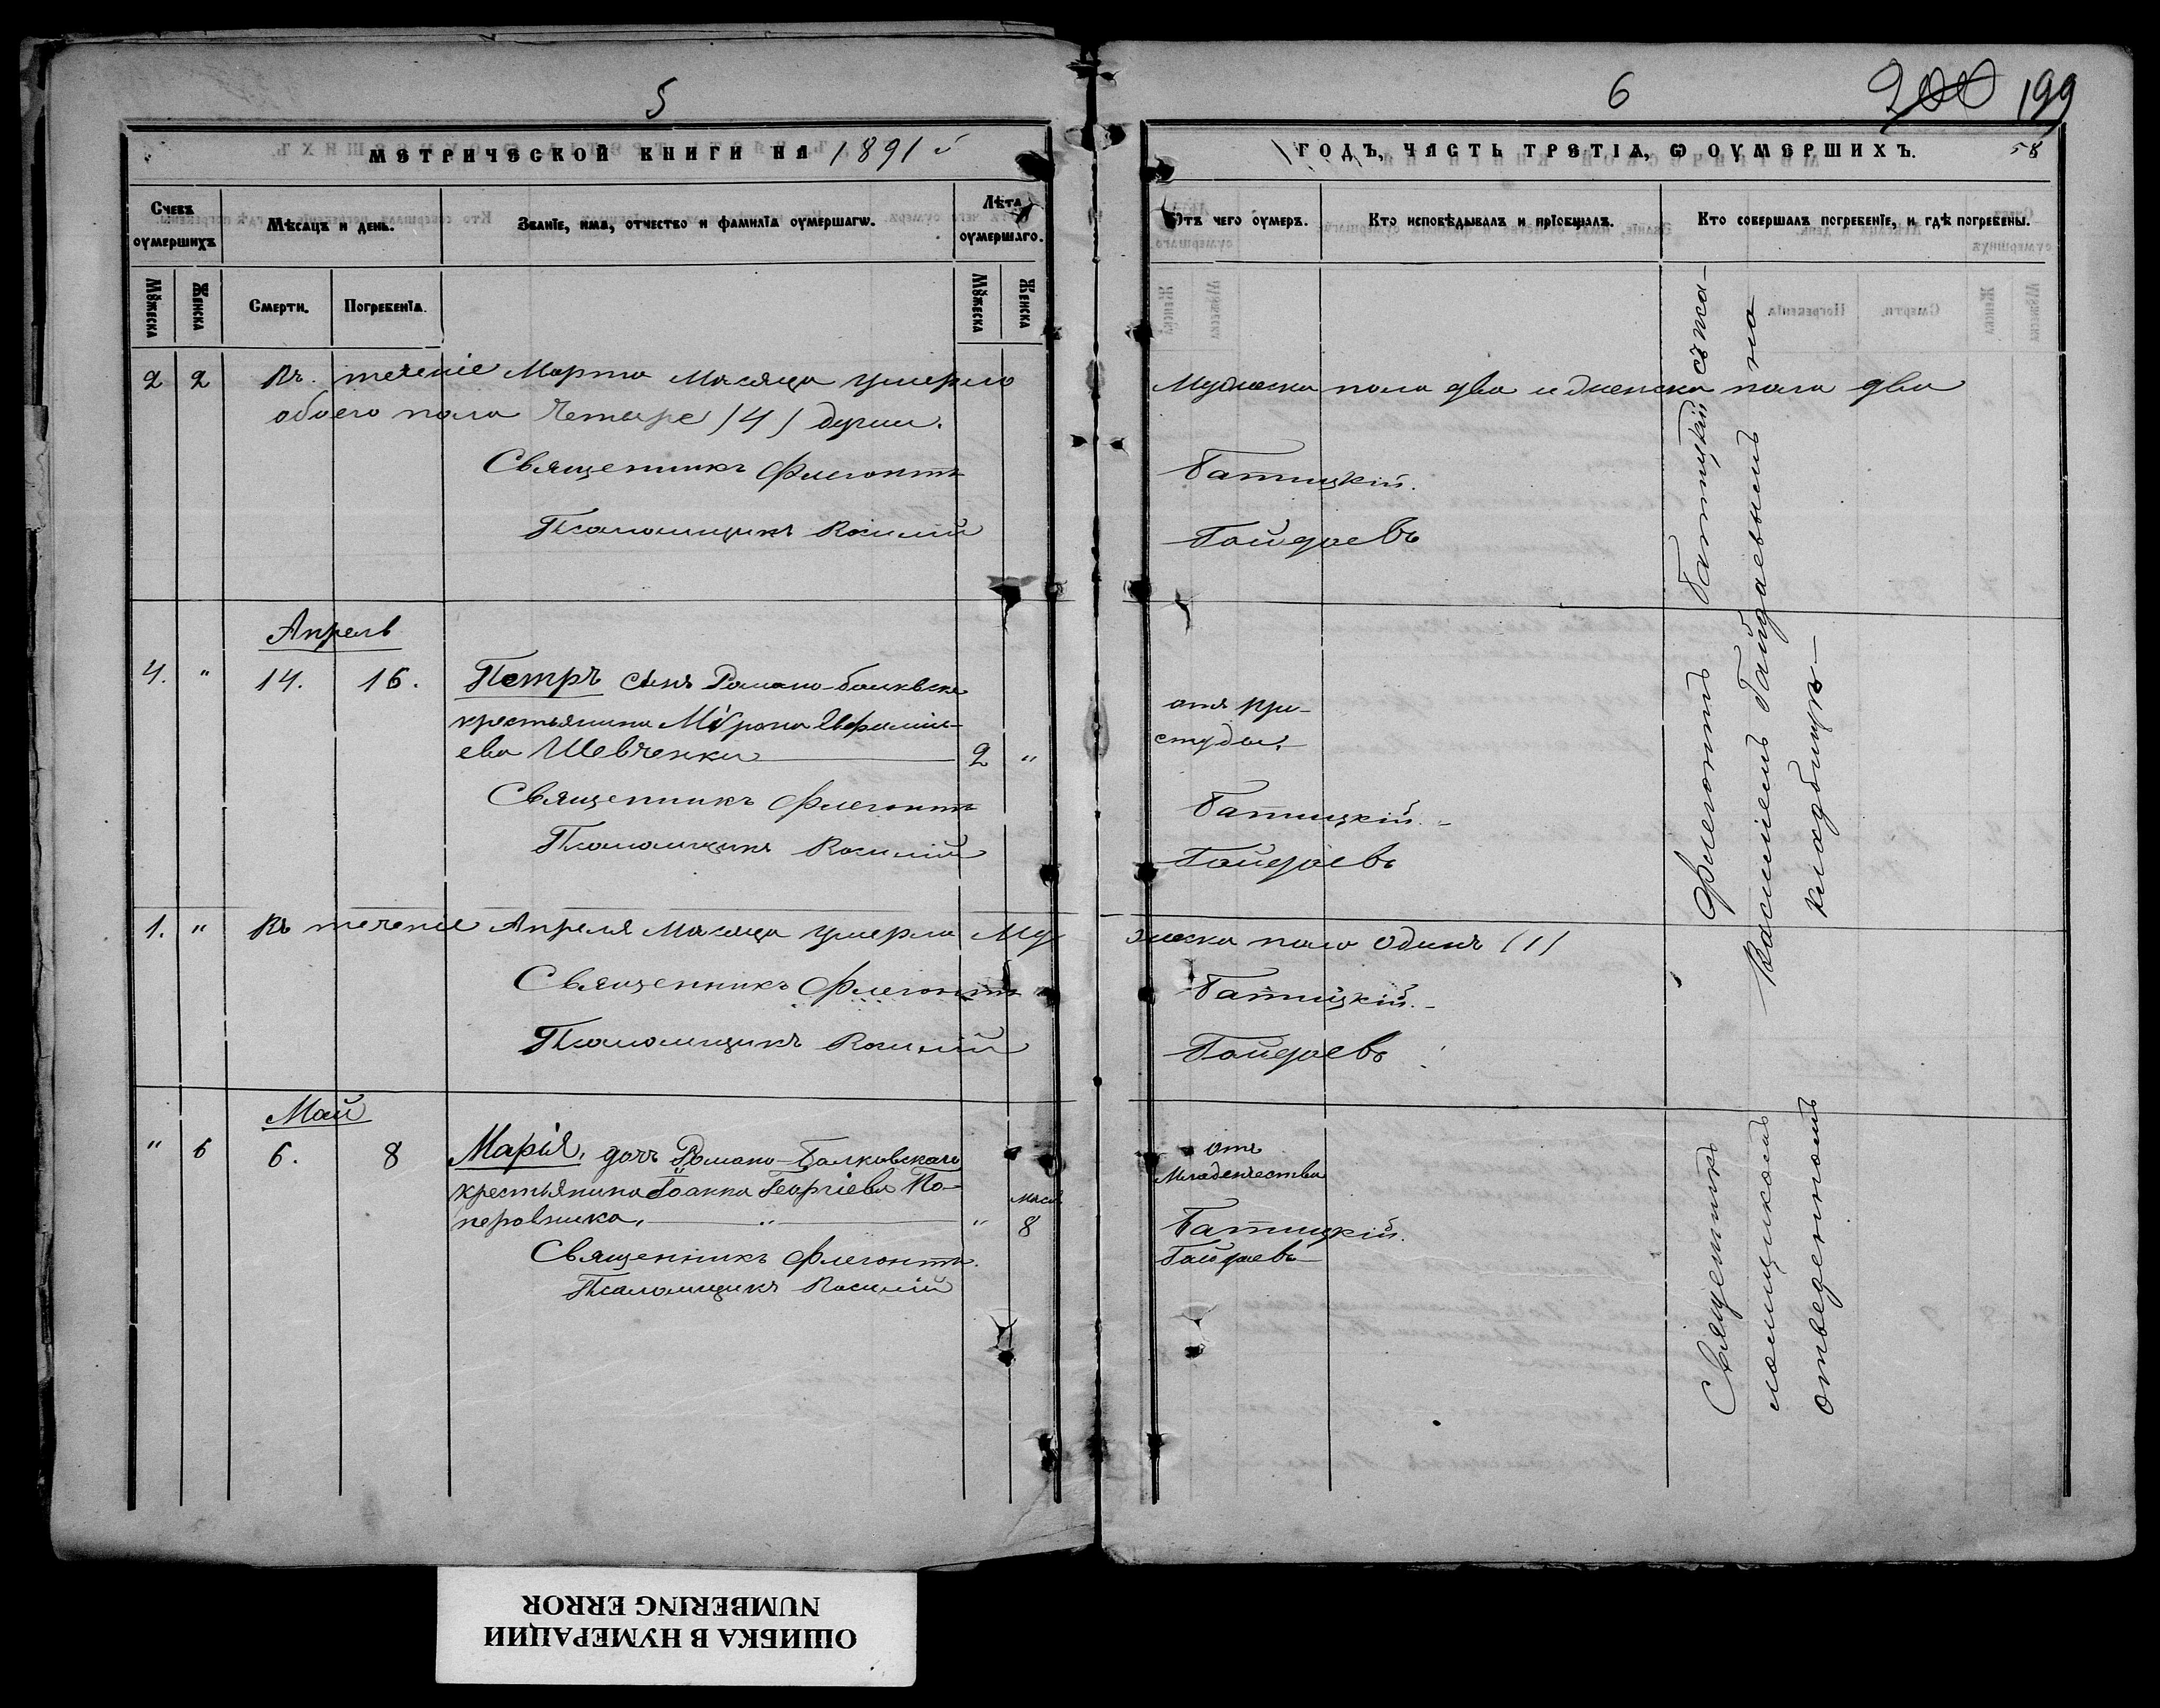 5
МЕТРИЧЕСКОЙ КНИГИ НА 1891 й
Счетъ оумершихъ
Мѣсяцъ и день.
Званїе, имѧ, отчество и фамилїа оумершагѡ.
Лѣта оумершаго.
Мꙋжеска
Женска
Смерти.
Погребенїа.
Мꙋжеска
Женска
2 2 Въ теченіе Марта Мѣсяца умерло
обоего пола Четыре (4) души.
Священникъ Флегонтъ
Псаломщикъ Василій
Апрель
4. " 14. 16. Петръ сынъ Романо-балквска
крестьянина Мѵрона Евфиміи-
ева Шевченки 2 "
Священникъ Флегонтъ
Псаломщикъ Василій
1. " Въ теченіе Апреля Мѣсяца умерла Му
Священникъ Флегонтъ
Псаломщикъ Василій
Май
" 6 6. 8 Марія, дочь Романо-Балковскаго
крестьянина Іоанна Георгіева По-
перовника, " " мѣся 8
Священникъ Флегонтъ
Псаломщикъ Василій
6
200 199
ГОДЪ, ЧАСТЬ ТРЕТІѦ, Ѡ ОУМЕРШИХЪ.
58
Отъ чего оумеръ.
Кто исповѣдывалъ и прїобщалъ.
Кто совершалъ погребенїе, и гдѣ погребены.
Мужеска пола два и женска пола два
Батицкій.
Гайдаевъ
отъ про-
студы.
Батицкій.
Гайдаевъ
жеска пола Одинъ (1)
Батицкій.
Гайдаевъ
отъ
Младенчества
Батицкій.
Гайдаевъ
Священникъ Флегонтъ Батицкій съ пса-
ломщикомъ Василіемъ Гайдаевымъ на
отведенномъ кладбищѣ
ОШИБКА В НУМЕРАЦИИ
NUMBERING ERROR